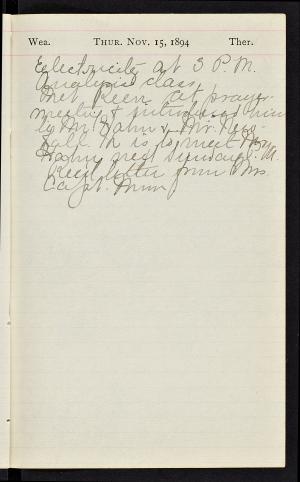 Wea. THUR. NOV. 15, 1894 Ther.
Electricity at 3 P.M.
Analysis class.
Met Keen at prayer
meeting & introduced him
to Mr. Hahn & Mr.
he is to meet
Hahn next Sunday P.M.
Rec'd letter from Mrs.
Capt.